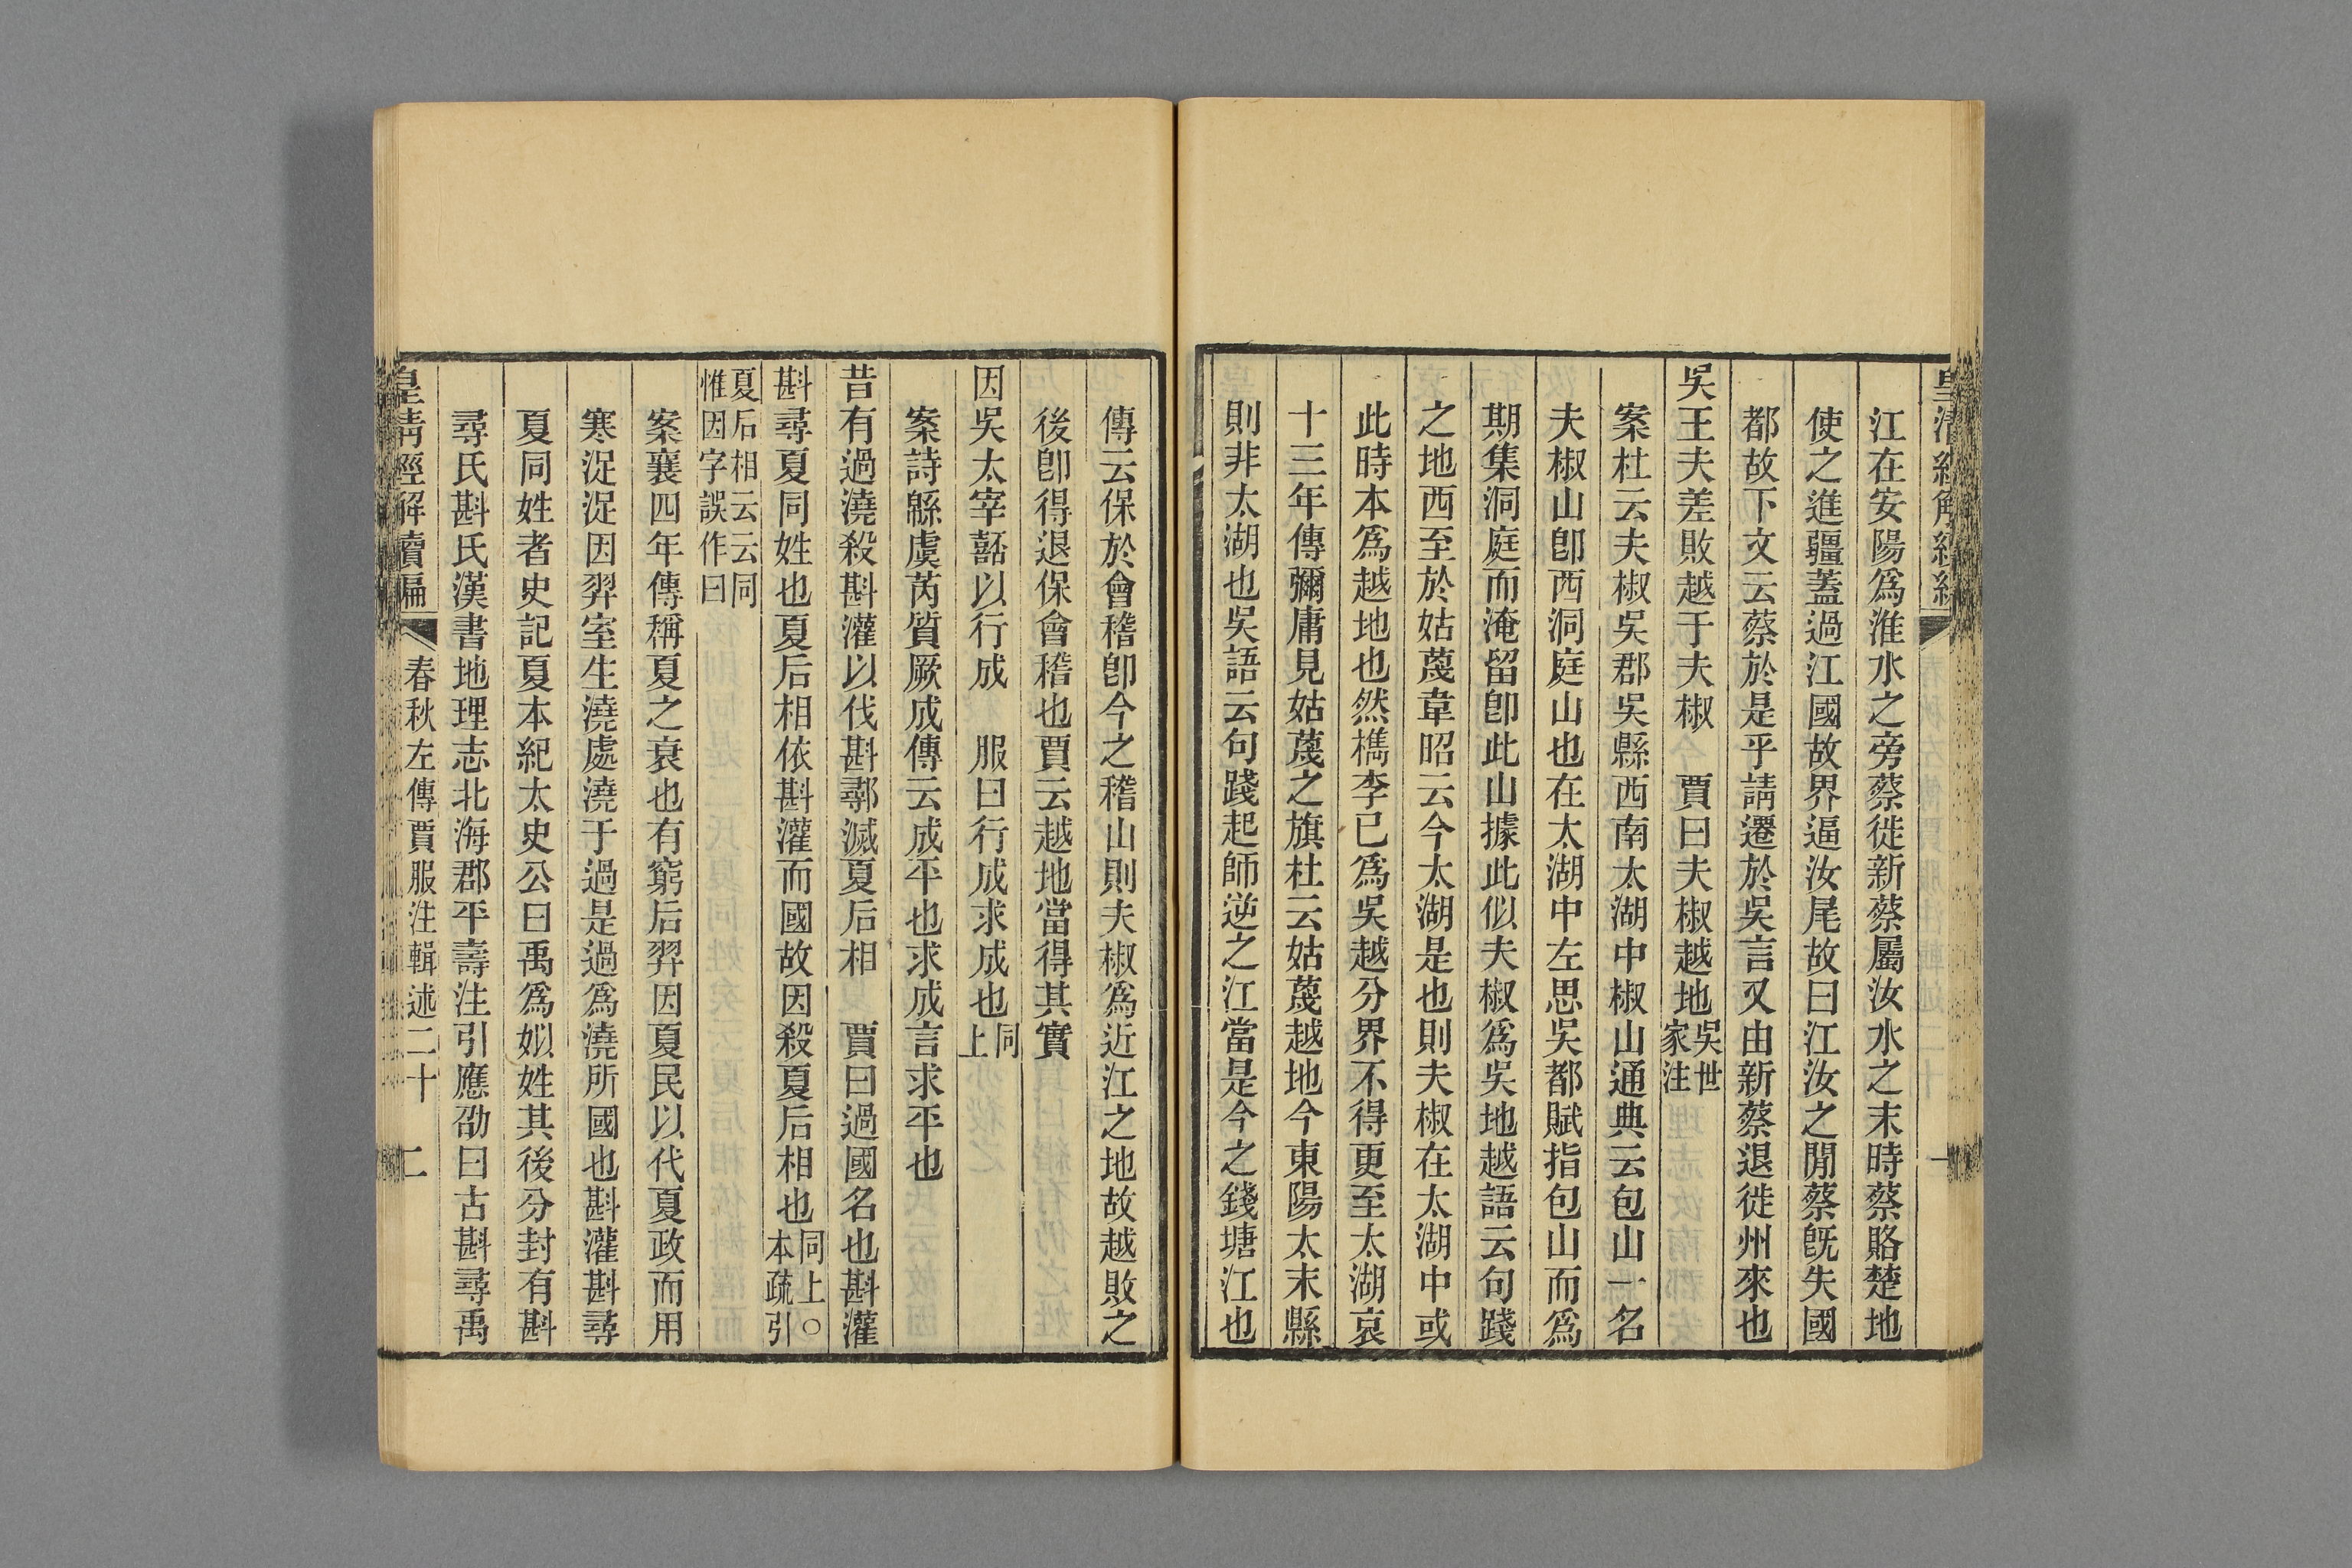 江在安陽爲淮水之旁蔡徙新蔡屬汝水之末時蔡賂楚地
使之進疆蓋過江國故界逼汝尾故曰江汝之閒蔡旣失國
都故下文云蔡於是乎請遷於吳言又由新蔡退徙州來也
吳王夫差敗越于夫椒　賈曰夫椒越地吳世家注
案杜云夫椒吳郡吳縣西南太湖中椒山通典云包山一名
夫椒山卽西洞庭山也在太湖中左思吳都賦指包山而爲
期集洞庭而淹留卽此山據此似夫椒爲吳地越語云句踐
之地西至於姑蔑韋昭云今太湖是也則夫椒在太湖中或
此時本爲越地也然檇李已爲吳越分界不得更至太湖哀
十三年傳彌庸見姑蔑之旗杜云姑蔑越地今東陽太末縣
則非太湖也吳語云句踐起師逆之江當是今之錢塘江也
傳云保於會稽卽今之稽山則夫椒爲近江之地故越敗之
後卽得退保會稽也賈云越地當得其實
因吳太宰嚭以行成　服曰行成求成也同上
案詩緜虞芮質厥成傳云成平也求成言求平也
昔有過澆殺斟灌以伐斟鄩滅夏后相　賈曰過國名也斟灌
斟尋夏同姓也夏后相依斟灌而國故因殺夏后相也同上○本疏引
夏后相云云同惟因字誤作曰
案襄四年傳稱夏之衰也有窮后羿因夏民以代夏政而用
寒浞浞因羿室生澆處澆于過是過爲澆所國也斟灌斟尋
夏同姓者史記夏本紀太史公曰禹爲姒姓其後分封有斟
尋氏斟氏漢書地理志北海郡平壽注引應劭曰古斟尋禹
皇清經解續編　春秋左傳賈服注輯述二十　二